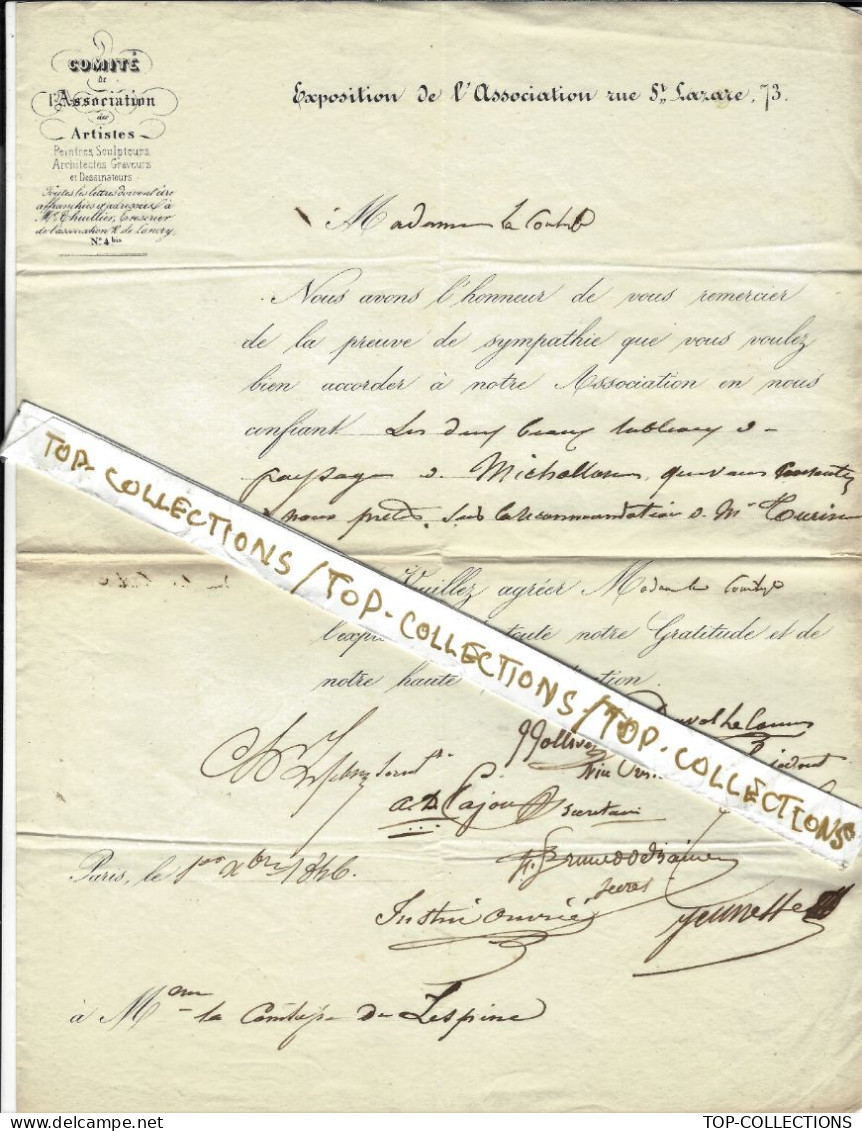 COMITÉ
de
l'Association
des
Artistes
Peintres, Sculpteurs,
Architectes Graveurs
et Dessinateurs
Toutes les lettres doivent être
affranchies et adressées à
Mr. Thuillier, Trésorier
de l'association R. de Lancry,
No. 4 bis
Exposition de l'Association rue St. Lazare, 73.
Madame la Comtesse
Nous avons l'honneur de vous remercier
de la preuve de sympathie que vous voulez
bien accorder à notre Association en nous
confiant Les deux beaux tableaux de
paysage de Michallon, que vous
nous prêter, sur la recommandation de Mr
Veuillez agréer Madame la Comtesse
toute notre Gratitude et de
notre haute
TOP-COLLECTIONS / TOP-COLLECTIONS / TOP-COLLECTIONS
Duval Le Camus
Vice
secrétaire
Justin Ouvrié
Paris, le 1er Xbre 1846.
à Mme la Comtesse de Lespine
TOP-COLLECTIONS